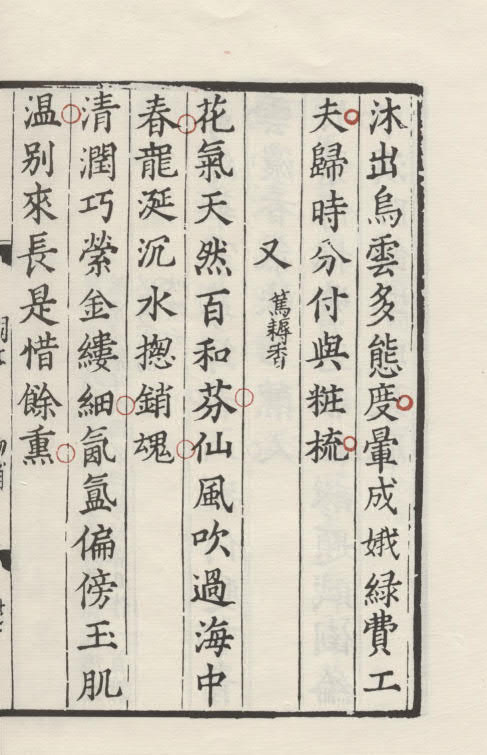 沐出烏雲多態度暈成娥緑費工
夫歸時分付與粧梳
又 篤耨香
花氣天然百和芬仙風吹過海中
春龍涎沉水揔銷魂
清潤巧縈金縷細氤氲偏傍玉肌
温别來長是惜餘熏